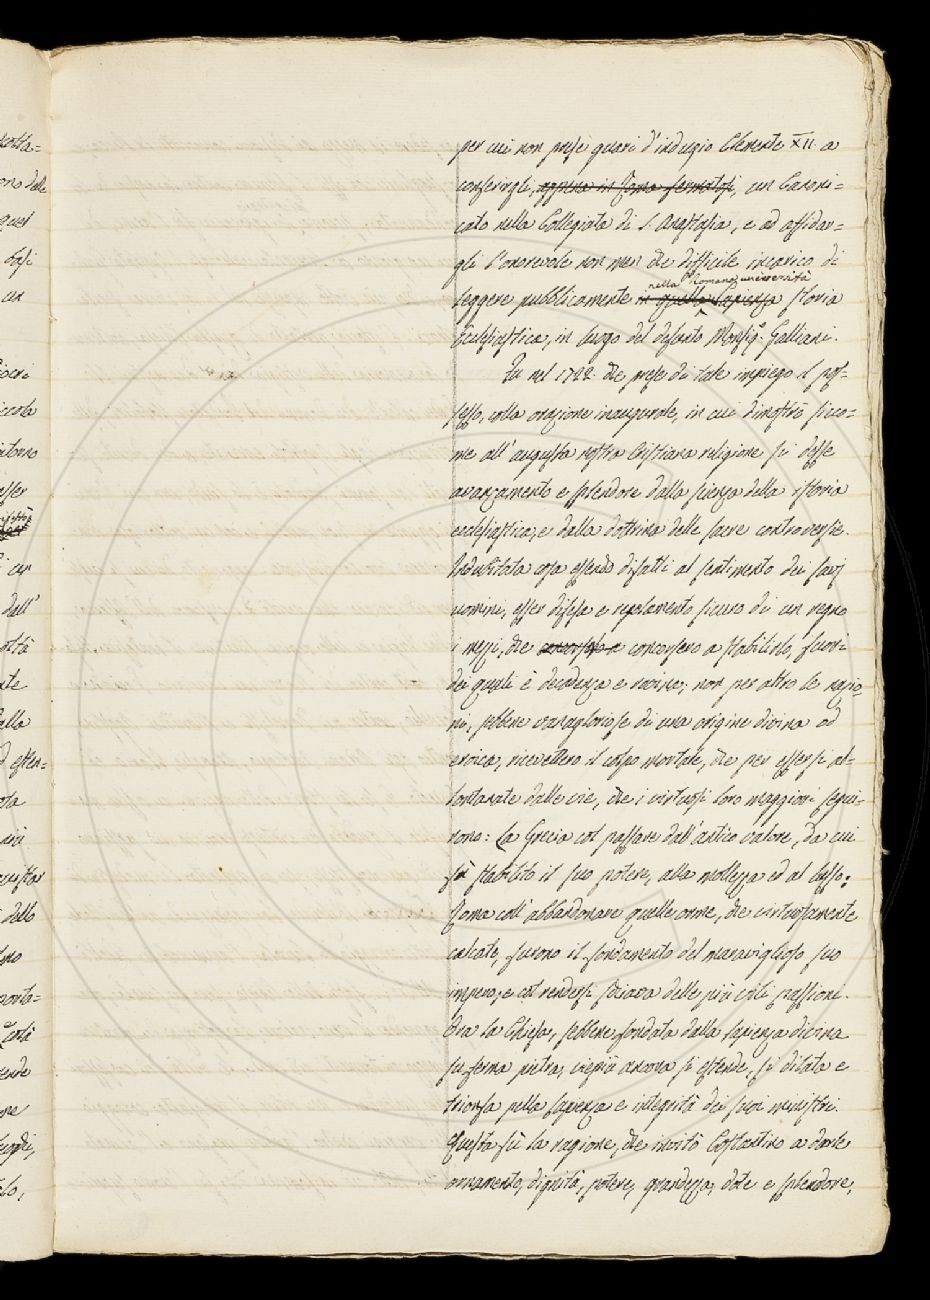 per cui non prese guari d'indugio Clemente XII. a
conferirgli, appena in Roma fermatosi, un Canoni=
cato nella Collegiata di S. Anastasia, e ad affidar=
gli l'onorevole non men che difficile incarico di
nella Romana università
leggere pubblicamente in quella Sapienza storia
Ecclesiastica, in luogo del defunto Monsig.r Galliani.
Fu nel 1732. che prese di tale impiego il pos=
sesso, colla orazione inaugurale, in cui dimostrò sico=
me all'augusta nostra Cristiana religione si desse
avanzamento e splendore dalla scienza della istoria
ecclesiastica, e dalla dottrina delle sacre controversie.
Indubitata cosa essendo difatti al sentimento dei savj
uomini, esser difesa e regolamento sicuro di un regno
i mezzi, che concorsero a stabilirlo, fuori
dei quali è decadenza e rovina; non per altro le nazio=
ni, sebbene vanagloriose di una origine divina ad
eroica, ricevettero il colpo mortale, che per essersi al=
lontanate dalle vie, che i virtuosi loro maggiori segui=
rono: La Grecia col passare dall'antico valore, da cui
fù stabilito il suo potere, alla mollezza ed al lusso:
Roma coll'abbandonare quelle orme, che virtuosamente
calcate, furono il fondamento del maraviglioso suo
impero, e col rendersi schiava delle più vili passioni.
Ora la Chiesa, sebbene fondata dalla sapienza divina
su ferma pietra, viepiù ancora si estende, si dilata e
trionfa pella sapienza e integrità dei suoi ministri.
Questa fù la ragione, che invitò Costantino a darle
ornamento, dignità, potere, grandezza, dote e splendore,